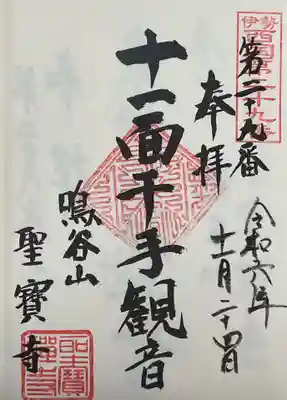 伊勢
西国第二十九番
第二十九番
奉拝
令和六年
十一月二十四日
十一面千手観音
鳴谷山
聖寶寺